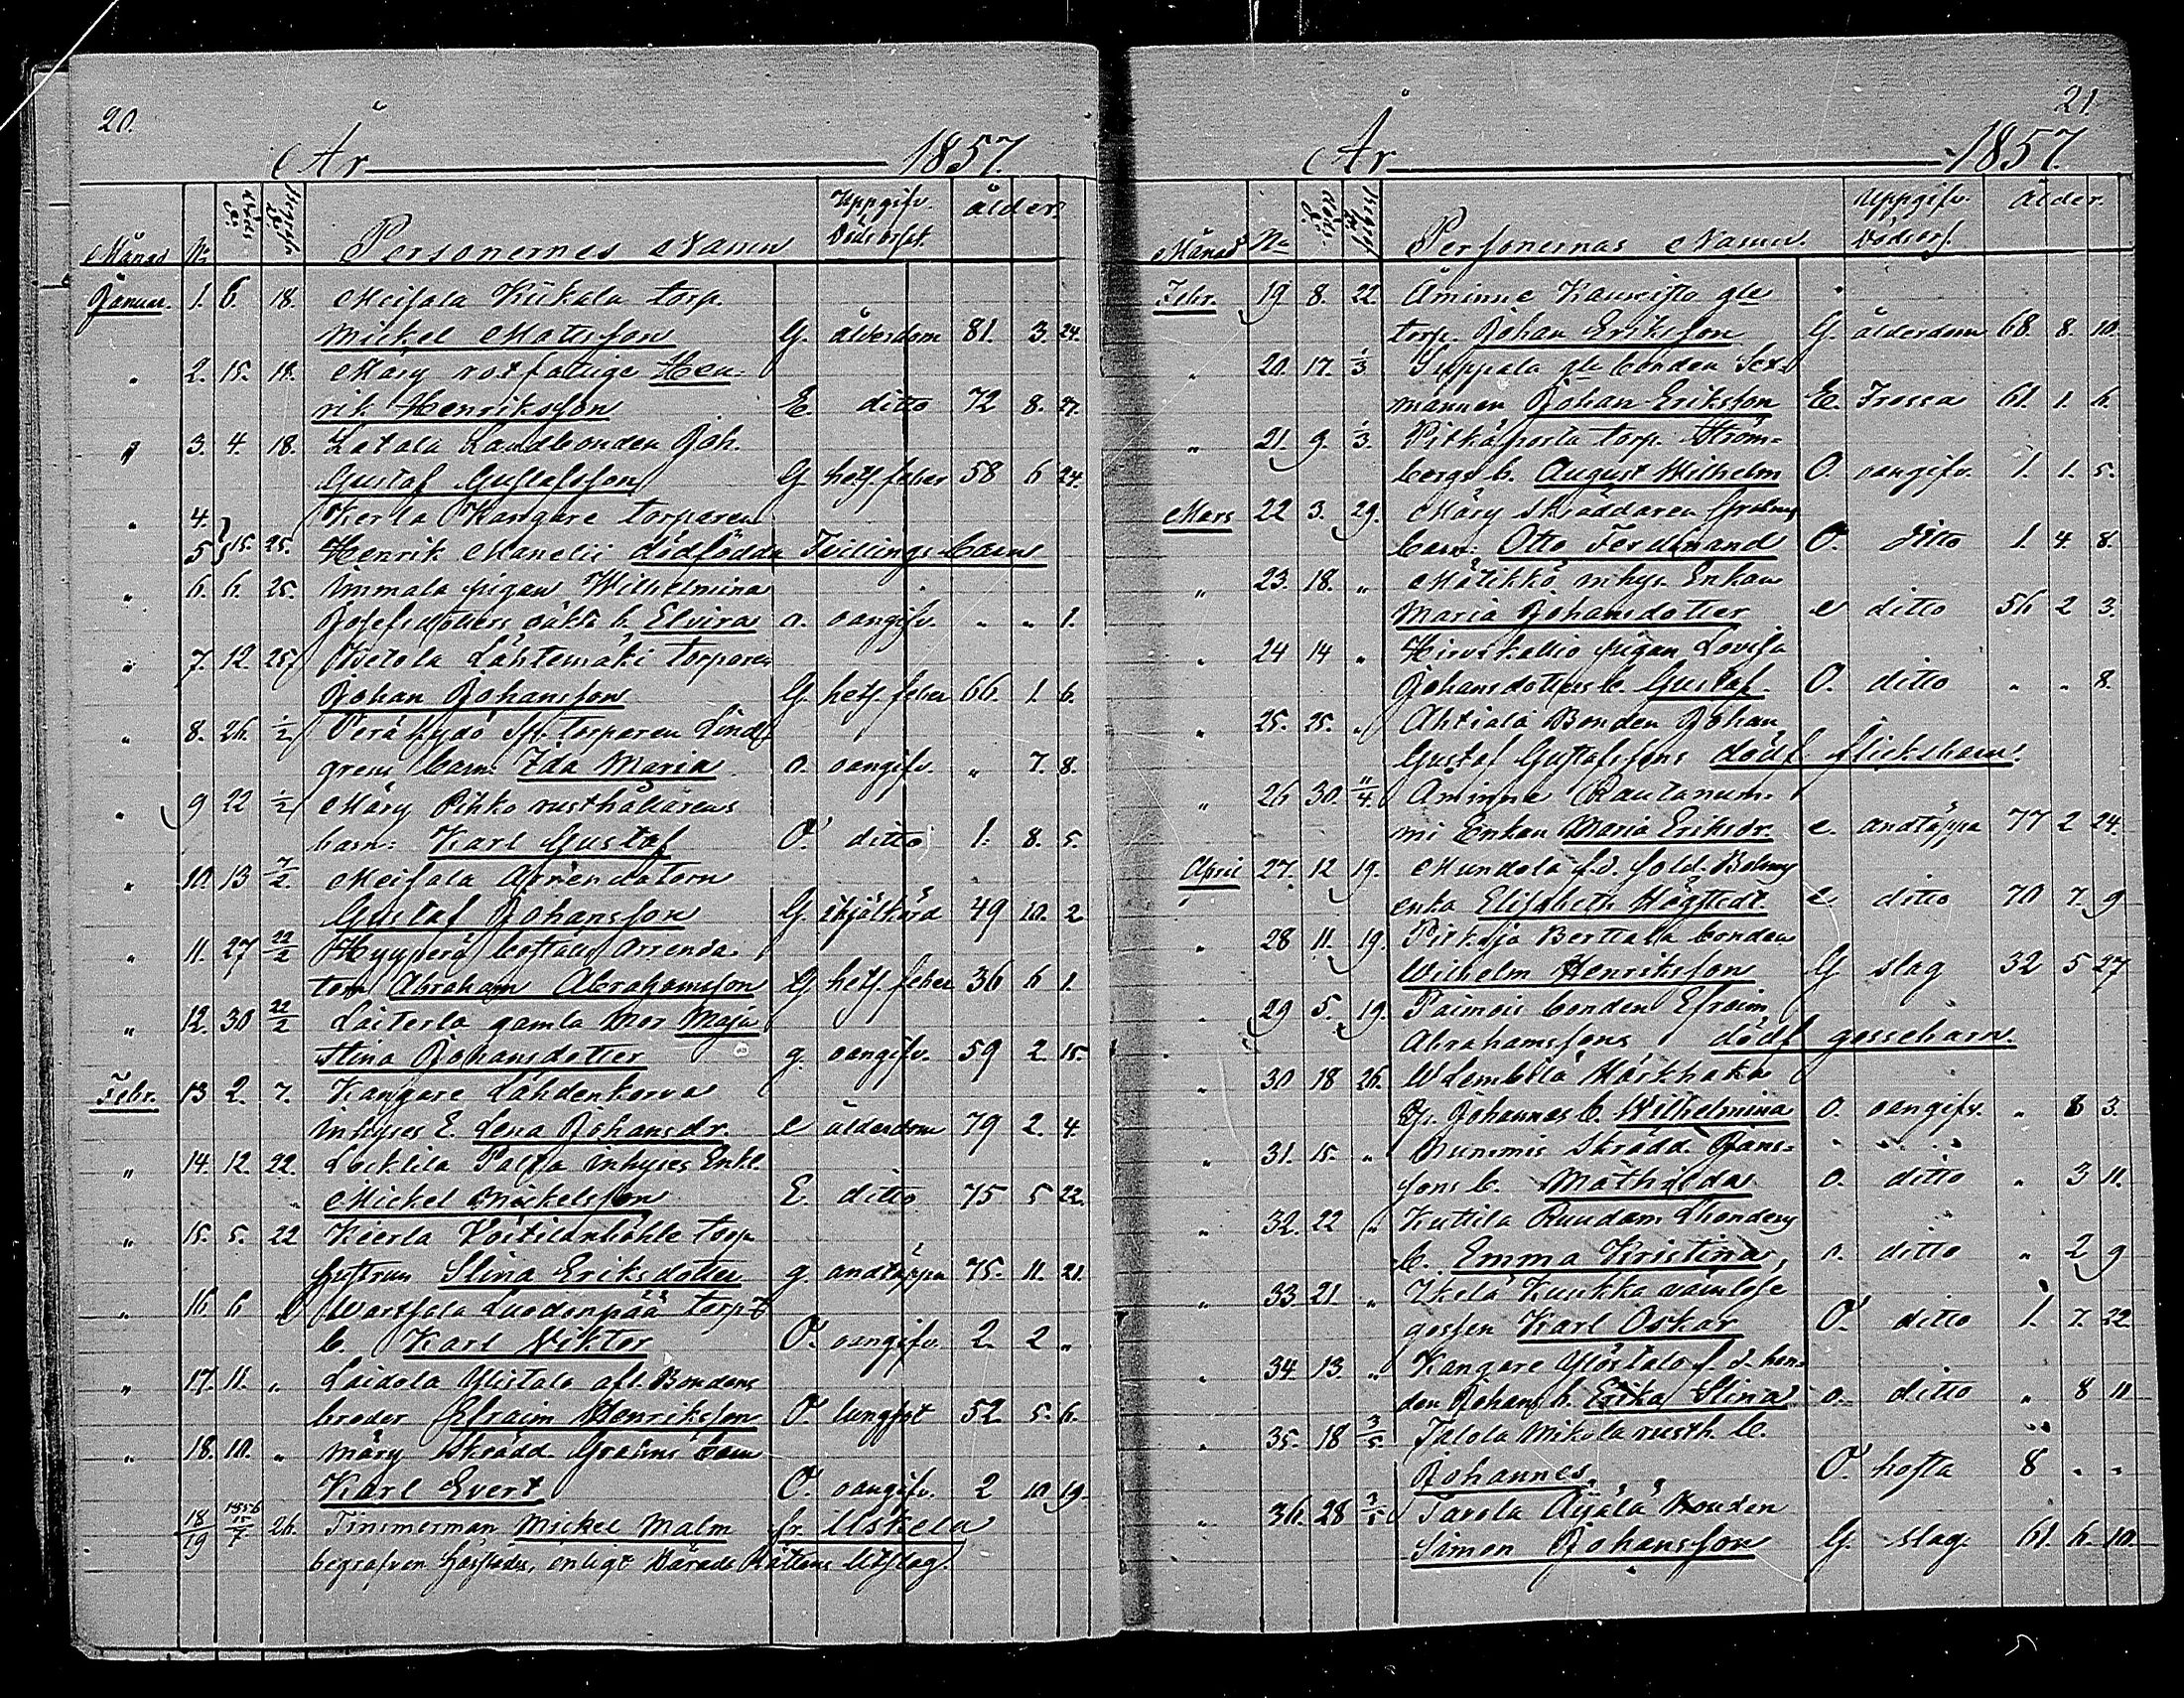 20.
År 1857.
Månad No Personernes Namn Uppgifv. Dödsorsak. ålder.
Januar. 1. 6. 18. Meisala Kükala torp.
Mickel Matsson G. ålderdom 81. 3. 24.
" 2. 15. 18. Märy rotfattige Hen-
rik Henriksson E. ditto 72 8. 27.
" 3. 4. 18. Latala Landbonden Joh.
Gustaf Gustafsson G hets. feber 58 6 24.
" 4. Kerla Kangare torparen
5 15. 25. Henrik Manelii dödfödda Tvillings barn
" 6. 6. 25. Immala pigan Wilhelmina
Josefsdotters oäkta b. Elvira o. oangifv. " " 1.
" 7. 12 25 Ketola Lähtemäki torparen
Johan Johansson G. hets. feber 66. 1. 6.
" 8. 26. 1/2 Perähydö torparen Lind-
grens barn Ida Maria o. oangifv. " 7. 8.
" 9 22 1/2 Märy Pihko rusthållarens
barn: Karl Gustaf O. ditto 1. 8. 5.
" 10. 13 7/2. Meisala Arrendatorn
Gustaf Johansson G. ihjälkörd 49 10. 2
" 11. 27 22/2 Hyyperä boställs Arrenda-
torn Abraham Abrahamsson G. hets. feber 36 6 1.
" 12. 30 22/2 Laiterla gamla Mor Maja
Stina Johansdotter g. oangifv. 59 2 15.
Febr. 13 2. 7. Kangare Lähdenkorva
Inhyses E. Lena Johansdr. e ålderdom 79 2. 4.
" 14. 12. 22. Inhyses Enkl.
Mickel Mickelsson E. ditto 75 5 22.
" 15. 5. 22 Kierla torp.
hustrun Stina Eriksdotter g. andtäppa 75. 11. 21.
" 16. 6 " Wartsala Luodonpää torp.
b. Karl Viktor O. oangifv. 2. 2 "
" 17. 11. " Laidola Ylistalo afl. Bondens
broder Efraim Henriksson O. lungsot 52 5. 6.
" 18. 10. " Märy Skrädd. barn
Karl Evert O. oangifv. 2 10 19.
18/19 1856 26. Timmerman Mickel Malm fr. Uskela
begrafven härstädes, enligt Härads Rättens Utslag.
21.
År 1857.
Månad No Personernas Namn. Uppgifv. Dödsors. Ålder.
Febr. 19 8. 22 Åminne Kauvisto gle
torp. Johan Eriksson G. ålderdom 68. 8. 10.
" 20. 17. 1/3 Juppala gle bonden Sex-
mannen Johan Eriksson E. Frossa 61. 1. 6.
" 21. 9. 1/3. Pitkäporta torp. Ström-
bergs b. August Wilhelm O. oangifv. 1. 1. 5.
Mars 22 3. 29. Märy Skräddaren
barn: Otto Ferdinand O. ditto 1. 4. 8.
" 23. 18. " Mätikkö inhys. Enkan
Maria Johansdotter e ditto 56 2 3.
" 24 14 " Hirvikallio pigan Lovisa
Johansdotters b. Gustaf O. ditto " " 8.
" 25. 25. " Ahtiala Bonden Johan
Gustaf Gustafssons dödf. flickebarn.
" 26 30. 11/4. Åminne Rautanum-
mi Enkan Maria Eriksdr. e. andtäppa 77 2 24.
April 27. 12 19. Mundola f.d. sold.
enka Elisabeth Högstedt e ditto 70 7. 9
" 28 11. 19. Pirksjö Berttala bonden
Wilhelm Henriksson G slag 32 5 27
" 29 5. 19. Paimois bonden Efraim
Abrahamssons dödf. gossebarn.
" 30 18 26. Wlembilä Harkhaka
Johannes b. Wilhelmina o. oangifv. " 8 3.
" 31. 15. " Nummis Skrädd. Jans-
sons b. Mathilda o. ditto " 3 11.
" 32. 22 " Kuttila
b. Emma Kristina, o. ditto " 2 9
" 33. 21. " Ikelä Kuukka värnlöse
gossen Karl Oskar O. ditto 1. 7. 22
" 34. 13. " Kangare Ylöstalo f. d. bon-
den Johans b. Erika Stina o. ditto " 8 11
" 35. 18 3/5. Talola Mikola rusth. b.
Johannes. O. hosta 8 " "
" 36. 28 3/5 Tavola Äijälä Bonden
Simon Johansson G. slag. 61. 6. 10.